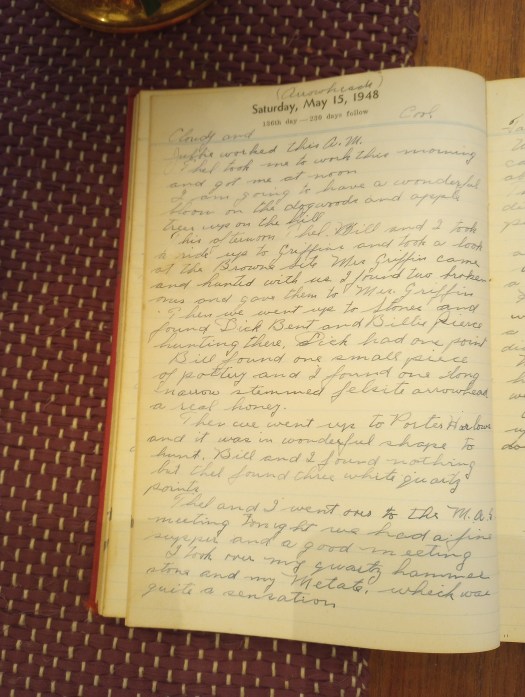 (Arrowheads)
Saturday, May 15, 1948
136th day — 230 days follow
Cool
Cloudy and
worked this A.M.
Thel took me to work this morning
and got me at noon
I am going to have a wonderful
bloom on the dogwoods and apple
trees up on the hill
This afternoon Thel, Bill and I took
a ride up to Griffins and took a look
at the Browne site Mrs Griffin came
and hunted with us I found two broken
ones and gave them to Mrs. Griffin
Then we went up to Stones and
found Dick Bent and Billie Pierce
hunting there. Dick had one point
Bill found one small piece
of pottery and I found one long
narrow stemmed felsite arrowhead
a real honey.
Then we went up to Porter Harlows
and it was in wonderful shape to
hunt. Bill and I found nothing
but Thel found three white quartz
points
Thel and I went over to the M.A.S.
meeting tonight we had a fine
supper and a good meeting
I took over my quartz hammer
stone and my Metate, which was
quite a sensation